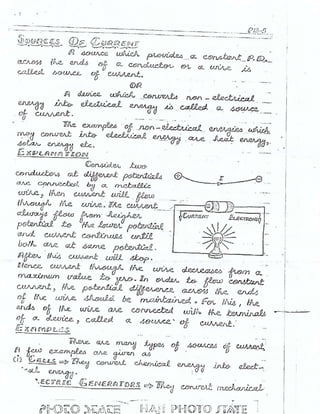 P13-5
SOURCES OF CURRENT
A source which provides a constant P.D.
across the ends of a conductor or a wire is
called source of current.
OR
A device which converts non-electrical
energy into electrical energy is called a source
of current.
The examples of non-electrical energies which
may convert into electrical energy are heat energy,
solar energy etc.
EXPLANATION
Consider two
conductors at different potentials
are connected by a metallic
wire, then current will flow
through the wire. The current
always flow from heigher
potential to the lower potential
and current continues until
both are at same potential.
After this current will stop.
I
CURRENT ELECTRONS
Hence current through the wire decreases from a
maximum value to zero. In order to flow constant
current, the potential difference across the ends
of the wire should be maintained. For this, the
ends of the wire are connected with the terminals
of a device, called a source of current.
EXAMPLES
There are many types of sources of current
A few examples are given as
(i) CELLS => They convert chemical energy into elect-
-cal energy.
ECTRIC GENERATORS => They convert mechanical
PHOTO STATE HAJI PHOTO STATE